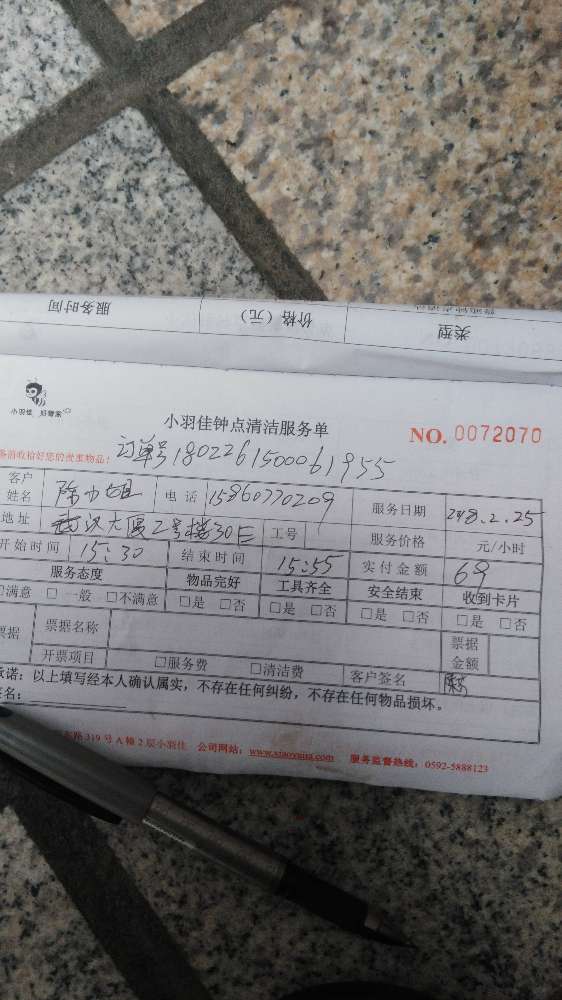 服务时间 价格（元） 类型
小羽佳 好管家
小羽佳钟点清洁服务单
NO. 0072070
备前收拾好您的贵重物品：
订单号1802261500061955
客户姓名 电话 15860770209 服务日期 2018.2.25
地址 武汉大厦2号楼30E 工号 服务价格 元/小时
开始时间 15:30 结束时间 15:55 实付金额 69
服务态度 物品完好 工具齐全 安全结束 收到卡片
□满意 □一般 □不满意 □是 □否 □是 □否 □是 □否 □是 □否
票据 票据名称 票据金额
开票项目 □服务费 □清洁费 客户签名
承诺：以上填写经本人确认属实，不存在任何纠纷，不存在任何物品损坏。
签名：
路319号A幢2层小羽佳 公司网站：www.xiaoyujia.com 服务监督热线：0592-5888123